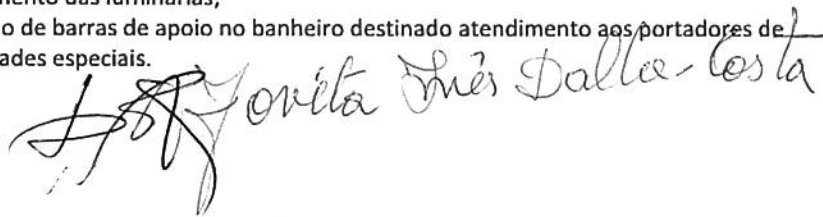 mento das luminárias,
o de barras de apoio no banheiro destinado atendimento aos portadores de
ades especiais.
Jovita Inês Dalla-Costa